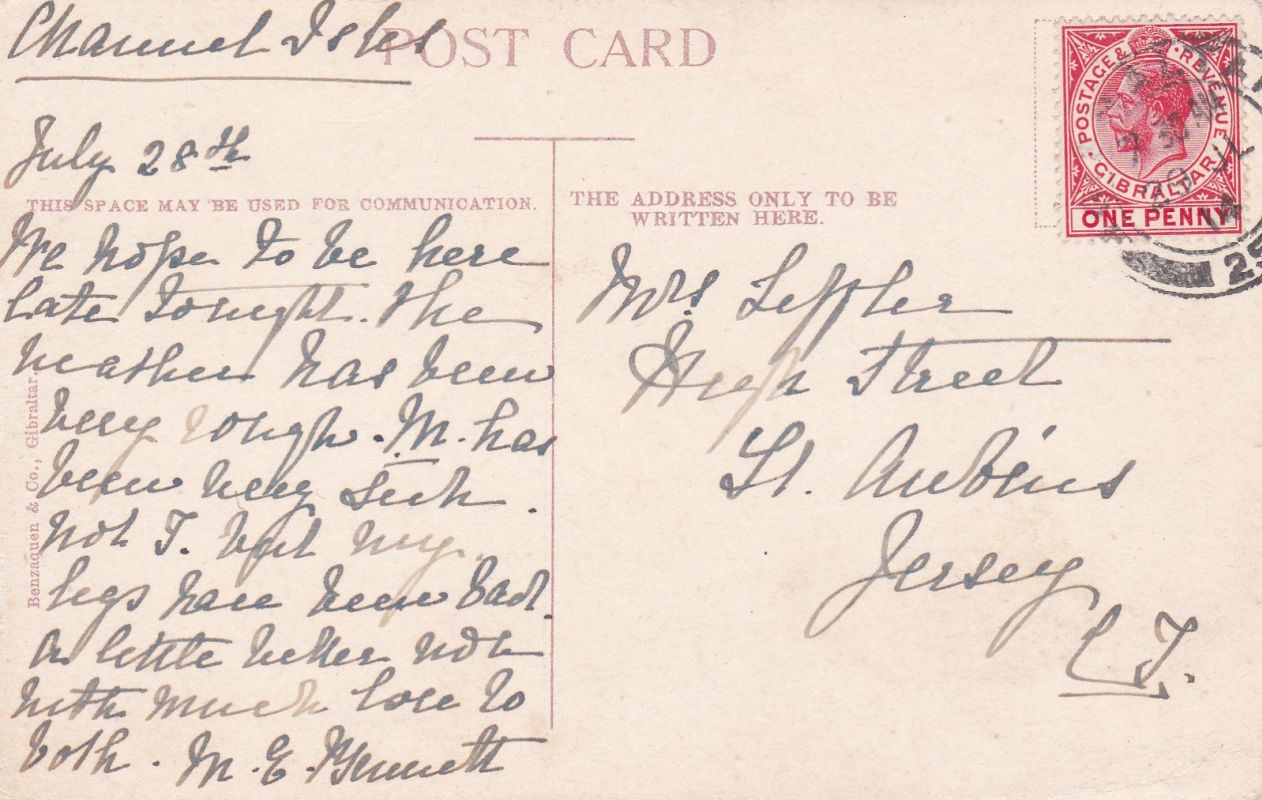 Channel Isles
POST CARD
July 28th
THIS SPACE MAY BE USED FOR COMMUNICATION.
We hope to be here
late tonight. The
weather has been
very rough. M. has
been very sick.
not I. but my
legs have been bad.
a little better now
with much love to
both. M. E. Bennett
Benzaquen & Co., Gibraltar
THE ADDRESS ONLY TO BE
WRITTEN HERE.
Mrs. Leffler
High Street
St. Aubins
Jersey
C I.
POSTAGE & REVENUE
GIBRALTAR
ONE PENNY
14
25